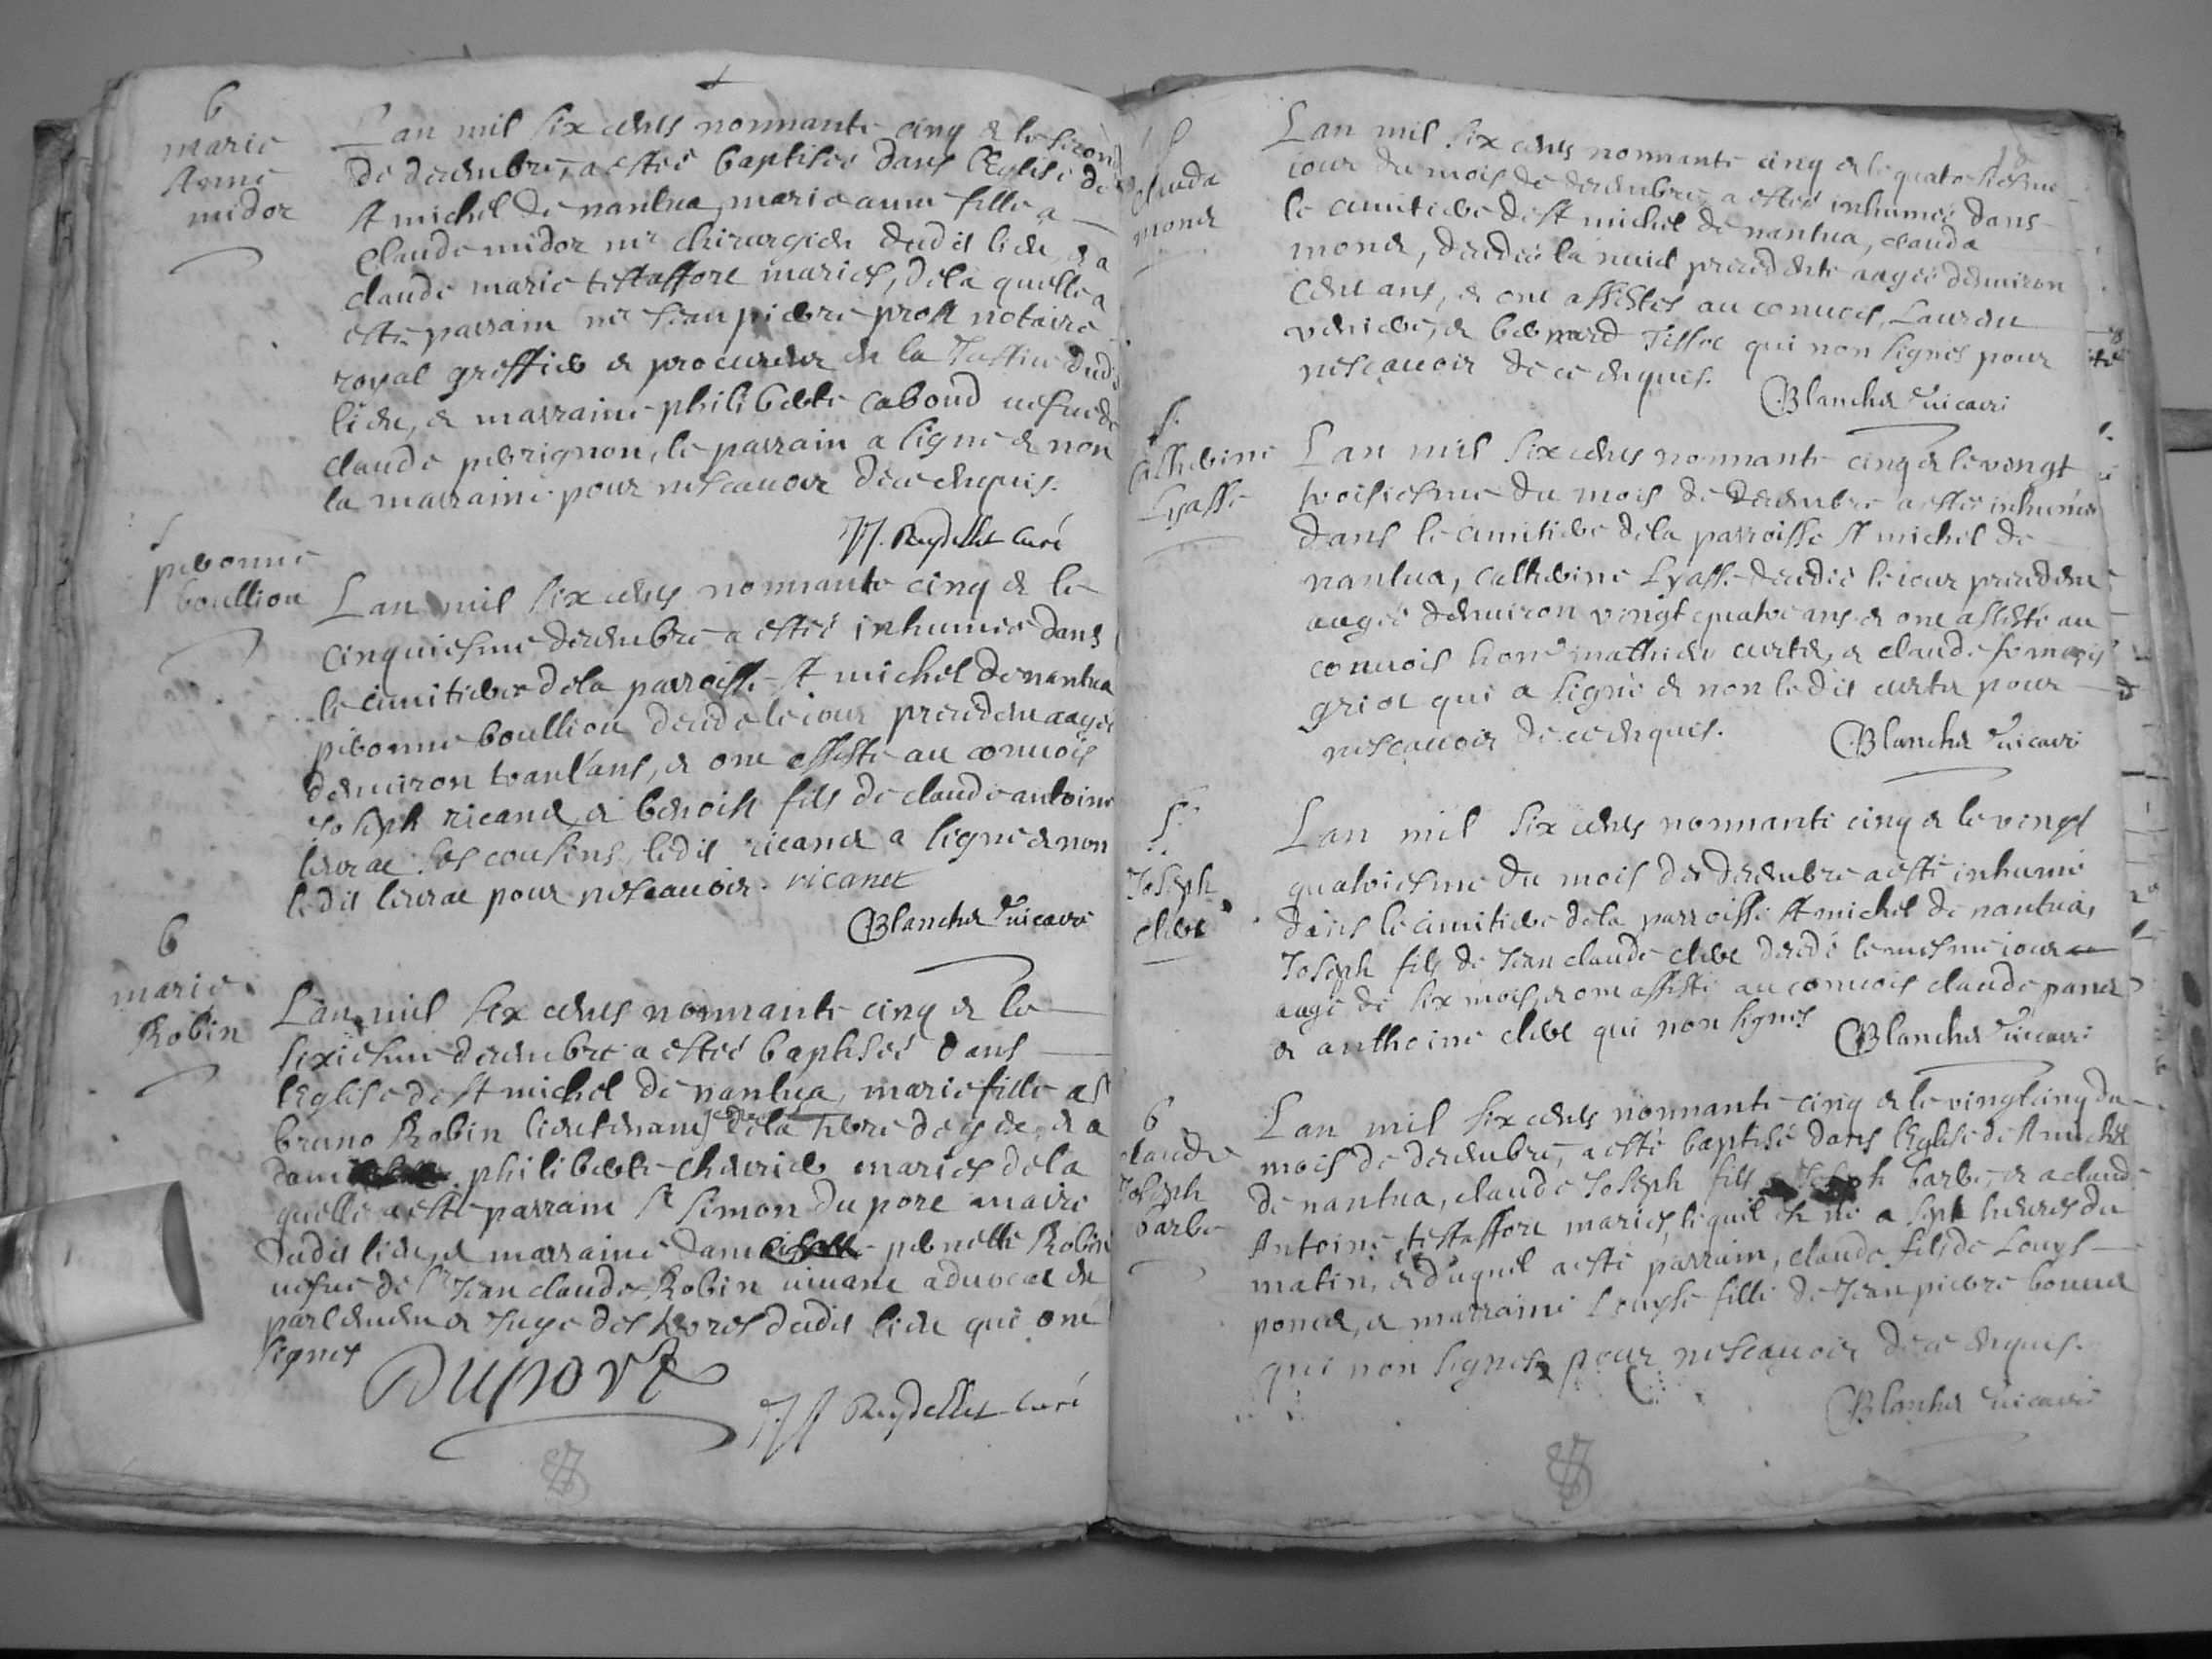 b
marie
Anne
midor
Lan mil six cents nonnante cinq & le second
de decembre, a estée baptisée dans l'Eglise de
st michel de nantua marie anne fille a
Claude midor mr chirurgien dudit lieu, & a
claude marie testaffort mariés, de la quelle a
esté parrain mr Jean pierre prost notaire
royal greffier & procureur en la Justice dudit
lieu, & marraine philiberte caboud vefue de
claude perrignon, le parrain a signé & non
la marraine pour ne scauoir de ce enquis.
Reydellet curé
S
peronne
boullion
Lan mil six cents nonnante cinq & le
cinquiesme decembre a estée inhumée dans
le cimitiere de la parroisse st michel de nantua
peronne boullion decedée le iour precedent aagée
denuiron trant'ans, & ont assisté au conuois
Joseph ricanet & benoist fils de claude antoine
ses cousins, ledit ricanet a signé & non
ledit pour ne scauoir. ricanet
Blanchet vicaire
b
marie
Robin
Lan mil six cents nonnante cinq & le
sixiesme decembre a estée baptisée dans
l'Eglise de st michel de nantua, marie fille a sr
bruno Robin lieutenant de la terre de & a
dam philiberte cheurier mariés de la
quelle a esté parrain sr simon du port maire
dudit lieu, & marraine dam pernette Robin
vefue de sr Jean claude Robin viuant aduocat en
parlement & Juge des terres dudit lieu qui ont
signés
Duport
Reydellet curé
S
Clauda
monet
Lan mil six cents nonnante cinq & le quatorsiesme
iour du mois de decembre, a estée inhumée dans
le cimitiere de st michel de nantua, clauda
monet, decedée la nuict precedente aagée denuiron
cent ans, & ont assistés au conuois, Laurent
& bernard Tissot qui non signés pour
ne scauoir de ce enquis.
Blanchet vicaire
S.
Catherine
Lyasse
Lan mil six cents nonnante cinq & le vingt
troisiesme du mois de decembre a estée inhumée
dans le cimitiere de la parroisse st michel de
nantua, catherine Lyasse decedée le iour precedent
aagée denuiron vingt quatre ans & ont assisté au
conuois hon mathieu curtet, & claude francois
griot qui a signé & non ledit curtet pour
ne scauoir de ce enquis.
Blanchet vicaire
S.
Joseph
clerc
Lan mil six cents nonnante cinq & le vingt
quatriesme du mois de decembre a esté inhumé
dans le cimitiere de la parroisse st michel de nantua,
Joseph fils de Jean claude clerc decedé le mesme iour
aagé de six mois, & ont assisté au conuois claude panet
& anthoine clerc qui non signés
Blanchet vicaire
b
claude
Joseph
barbe
Lan mil six cents nonnante cinq & le vingt cinq du
mois de decembre, a esté baptisé dans l'Eglise de st michel
de nantua, claude Joseph fils a Joseph barbe, & a claude
Antoine testaffort mariés, lequel est né a sept heures du
matin, & duquel a esté parrain, claude fils de Louys
poncet, & marraine Louyse fille de Jean pierre bonnet
qui non signés pour ne scauoir de ce enquis.
Blanchet vicaire